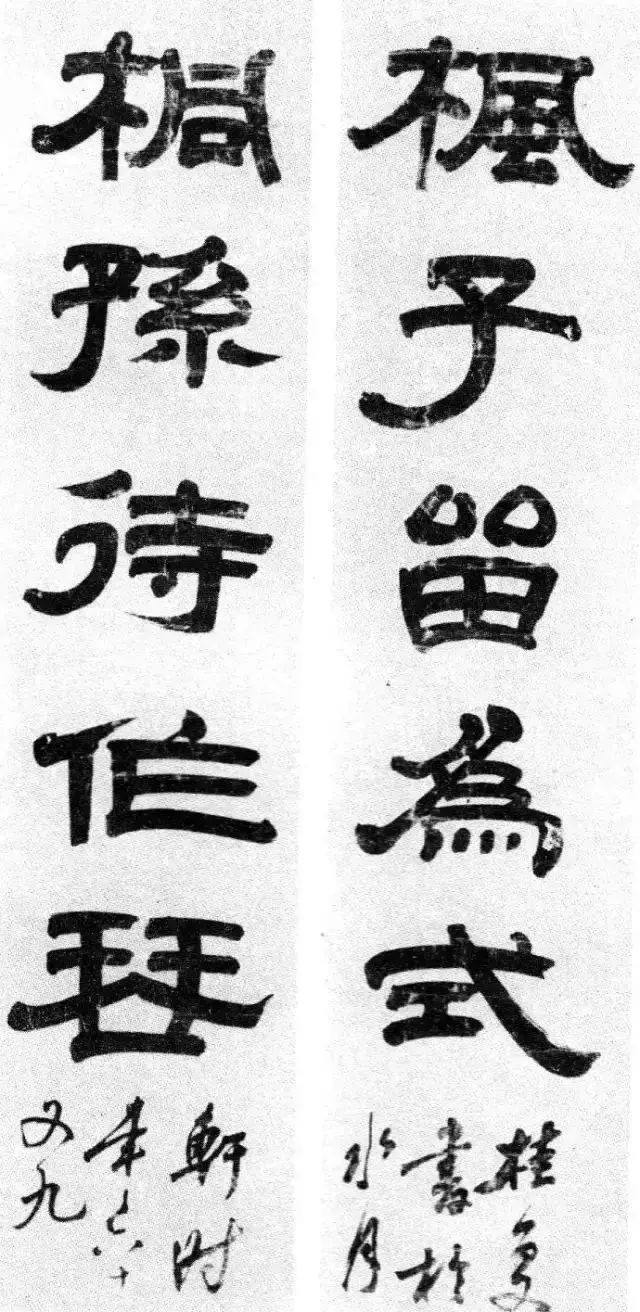 楓子留為式
桂复
書於
水月
桐孫待作琴
軒时
年六十
又九